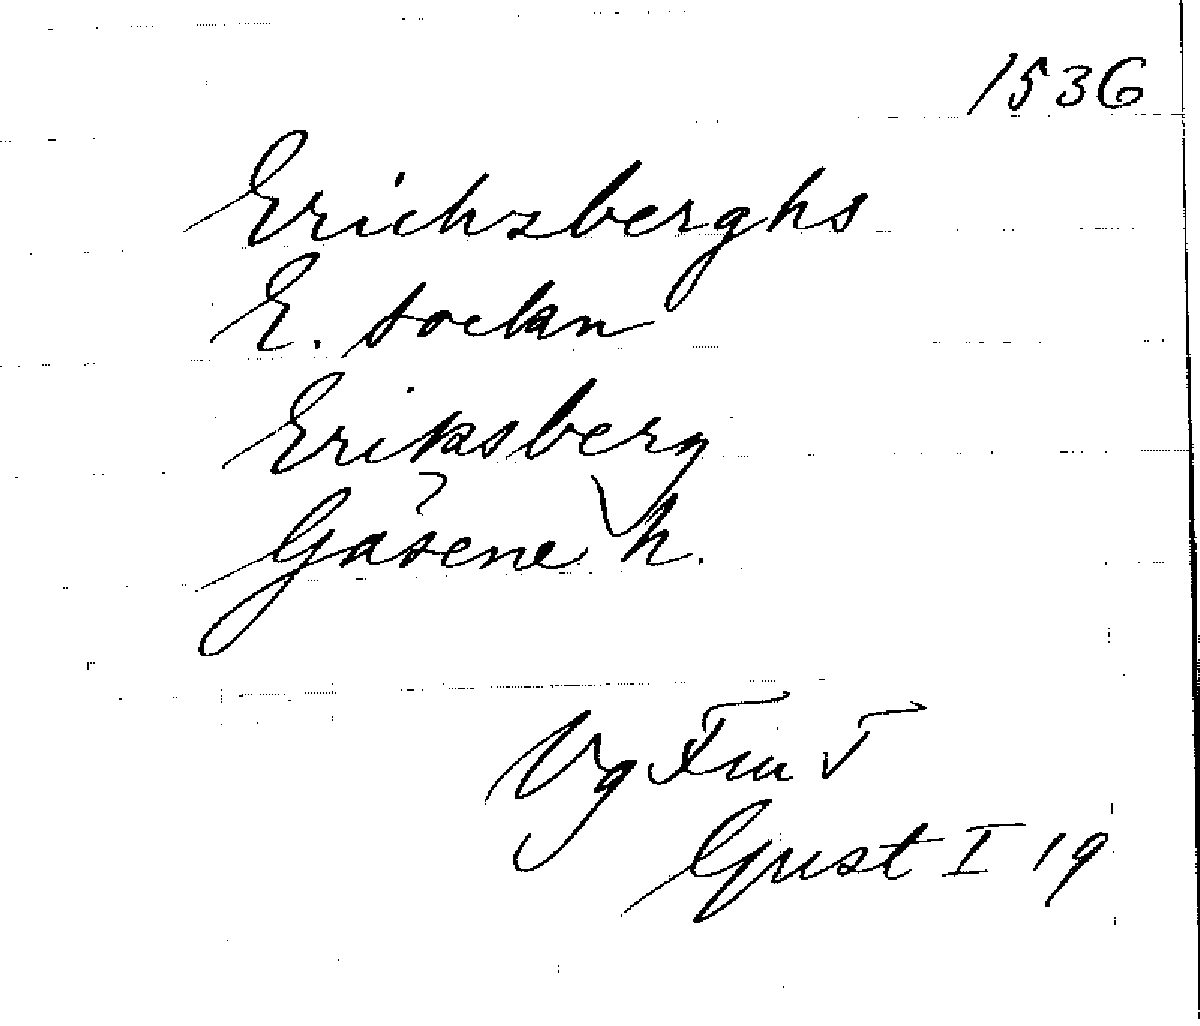 1536
Erichzberghs
E. sockn
Eriksberg
Gäsene h.
Vg
Gust I 19